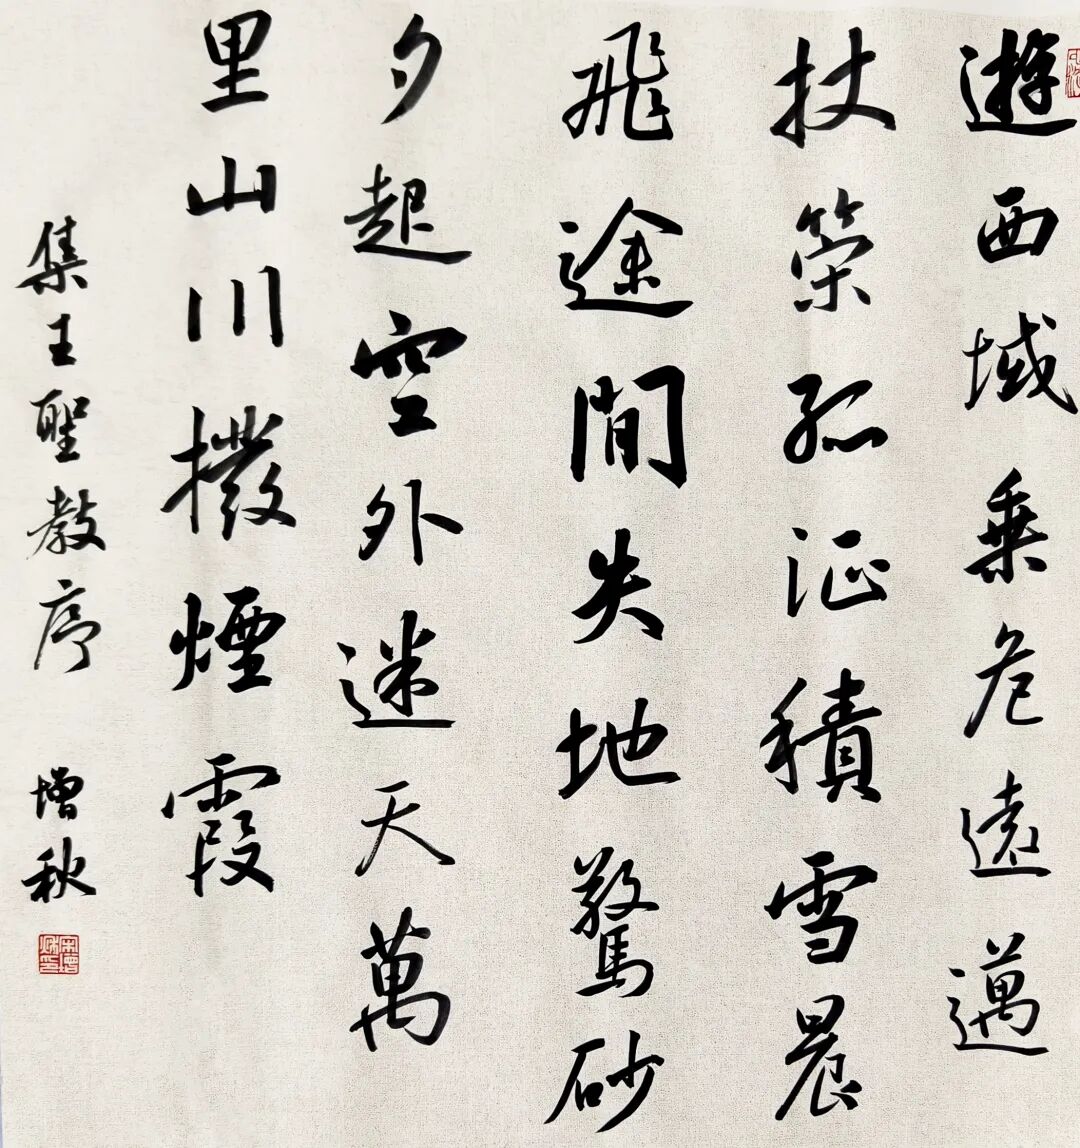 遊西域乘危遠邁
杖策孤征積雪晨
飛途間失地驚砂
夕起空外迷天萬
里山川撥煙霞
集王聖教序 增秋